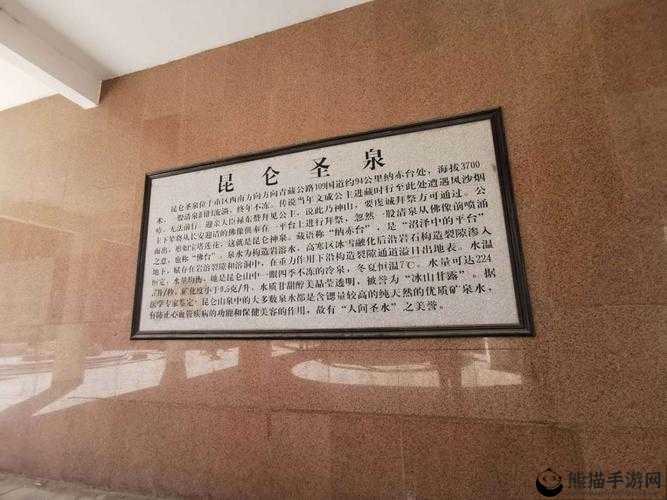 昆仑圣泉
昆仑圣泉位于市区西南方向方向青藏公路109国道约94公里纳赤台处，海拔3700
米，一股清泉汩汩流淌，终年不冻。传说当年文成公主进藏时行至此处遭遇风沙烟
无法前行，迎亲人臣禄东赞拜见公主，说此乃神山，要虔诚拜祭方可通过。公
主下轿将从长安迎请的佛像供奉在一平台上进行拜祭，忽然一股清泉从佛像前喷涌
而出，形如宝塔莲花，这就是昆仑神泉。藏语称“纳赤台”，是“沼泽中的平台”
之意，也称“佛台”。泉水为构造岩溶水，高寒区冰雪融化后沿岩石构造裂隙渗入
地下，赋存在岩溶裂隙和溶洞中，在重力作用下沿构造裂隙通道溢出地表。水温
恒定，水量均衡，她是昆仑山中一眼四季不冻的冷泉，冬夏恒温7℃，水量可达224
/秒，矿化度小于0.5克/升，水质甘甜醇美晶莹透明，被誉为“冰山甘露”。据
医学专家鉴定：昆仑山泉中的大多数泉水都是含锶量较高的纯天然的优质矿泉水，
有防止心血管疾病的功能和保健美容的作用，故有“人间圣水”之美誉。
熊猫手游网